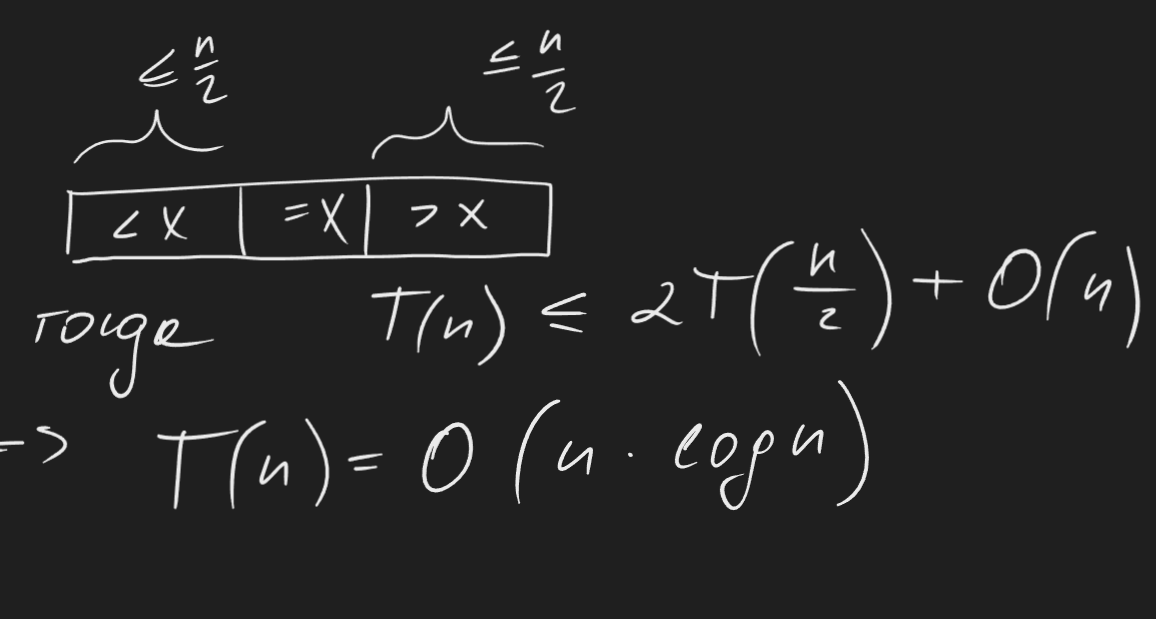 ≤ n/2 ≤ n/2
< x = x > x
тогда T(n) ≤ 2T(n/2) + O(n)
-> T(n) = O(n · log n)